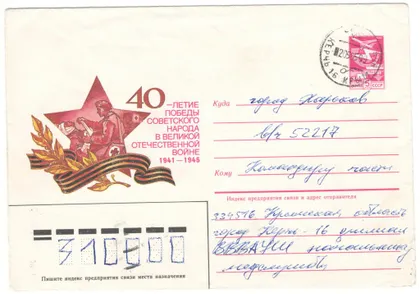 40
-ЛЕТИЕ
ПОБЕДЫ
СОВЕТСКОГО
НАРОДА
В ВЕЛИКОЙ
ОТЕЧЕСТВЕННОЙ
ВОЙНЕ
1941—1945
КЕРЧЬ 16
Куда город Харьков
в/ч 52217
Кому Командиру части
Индекс предприятия связи и адрес отправителя
334516 Крымская область
город Керчь-16
310000
Пишите индекс предприятия связи места назначения